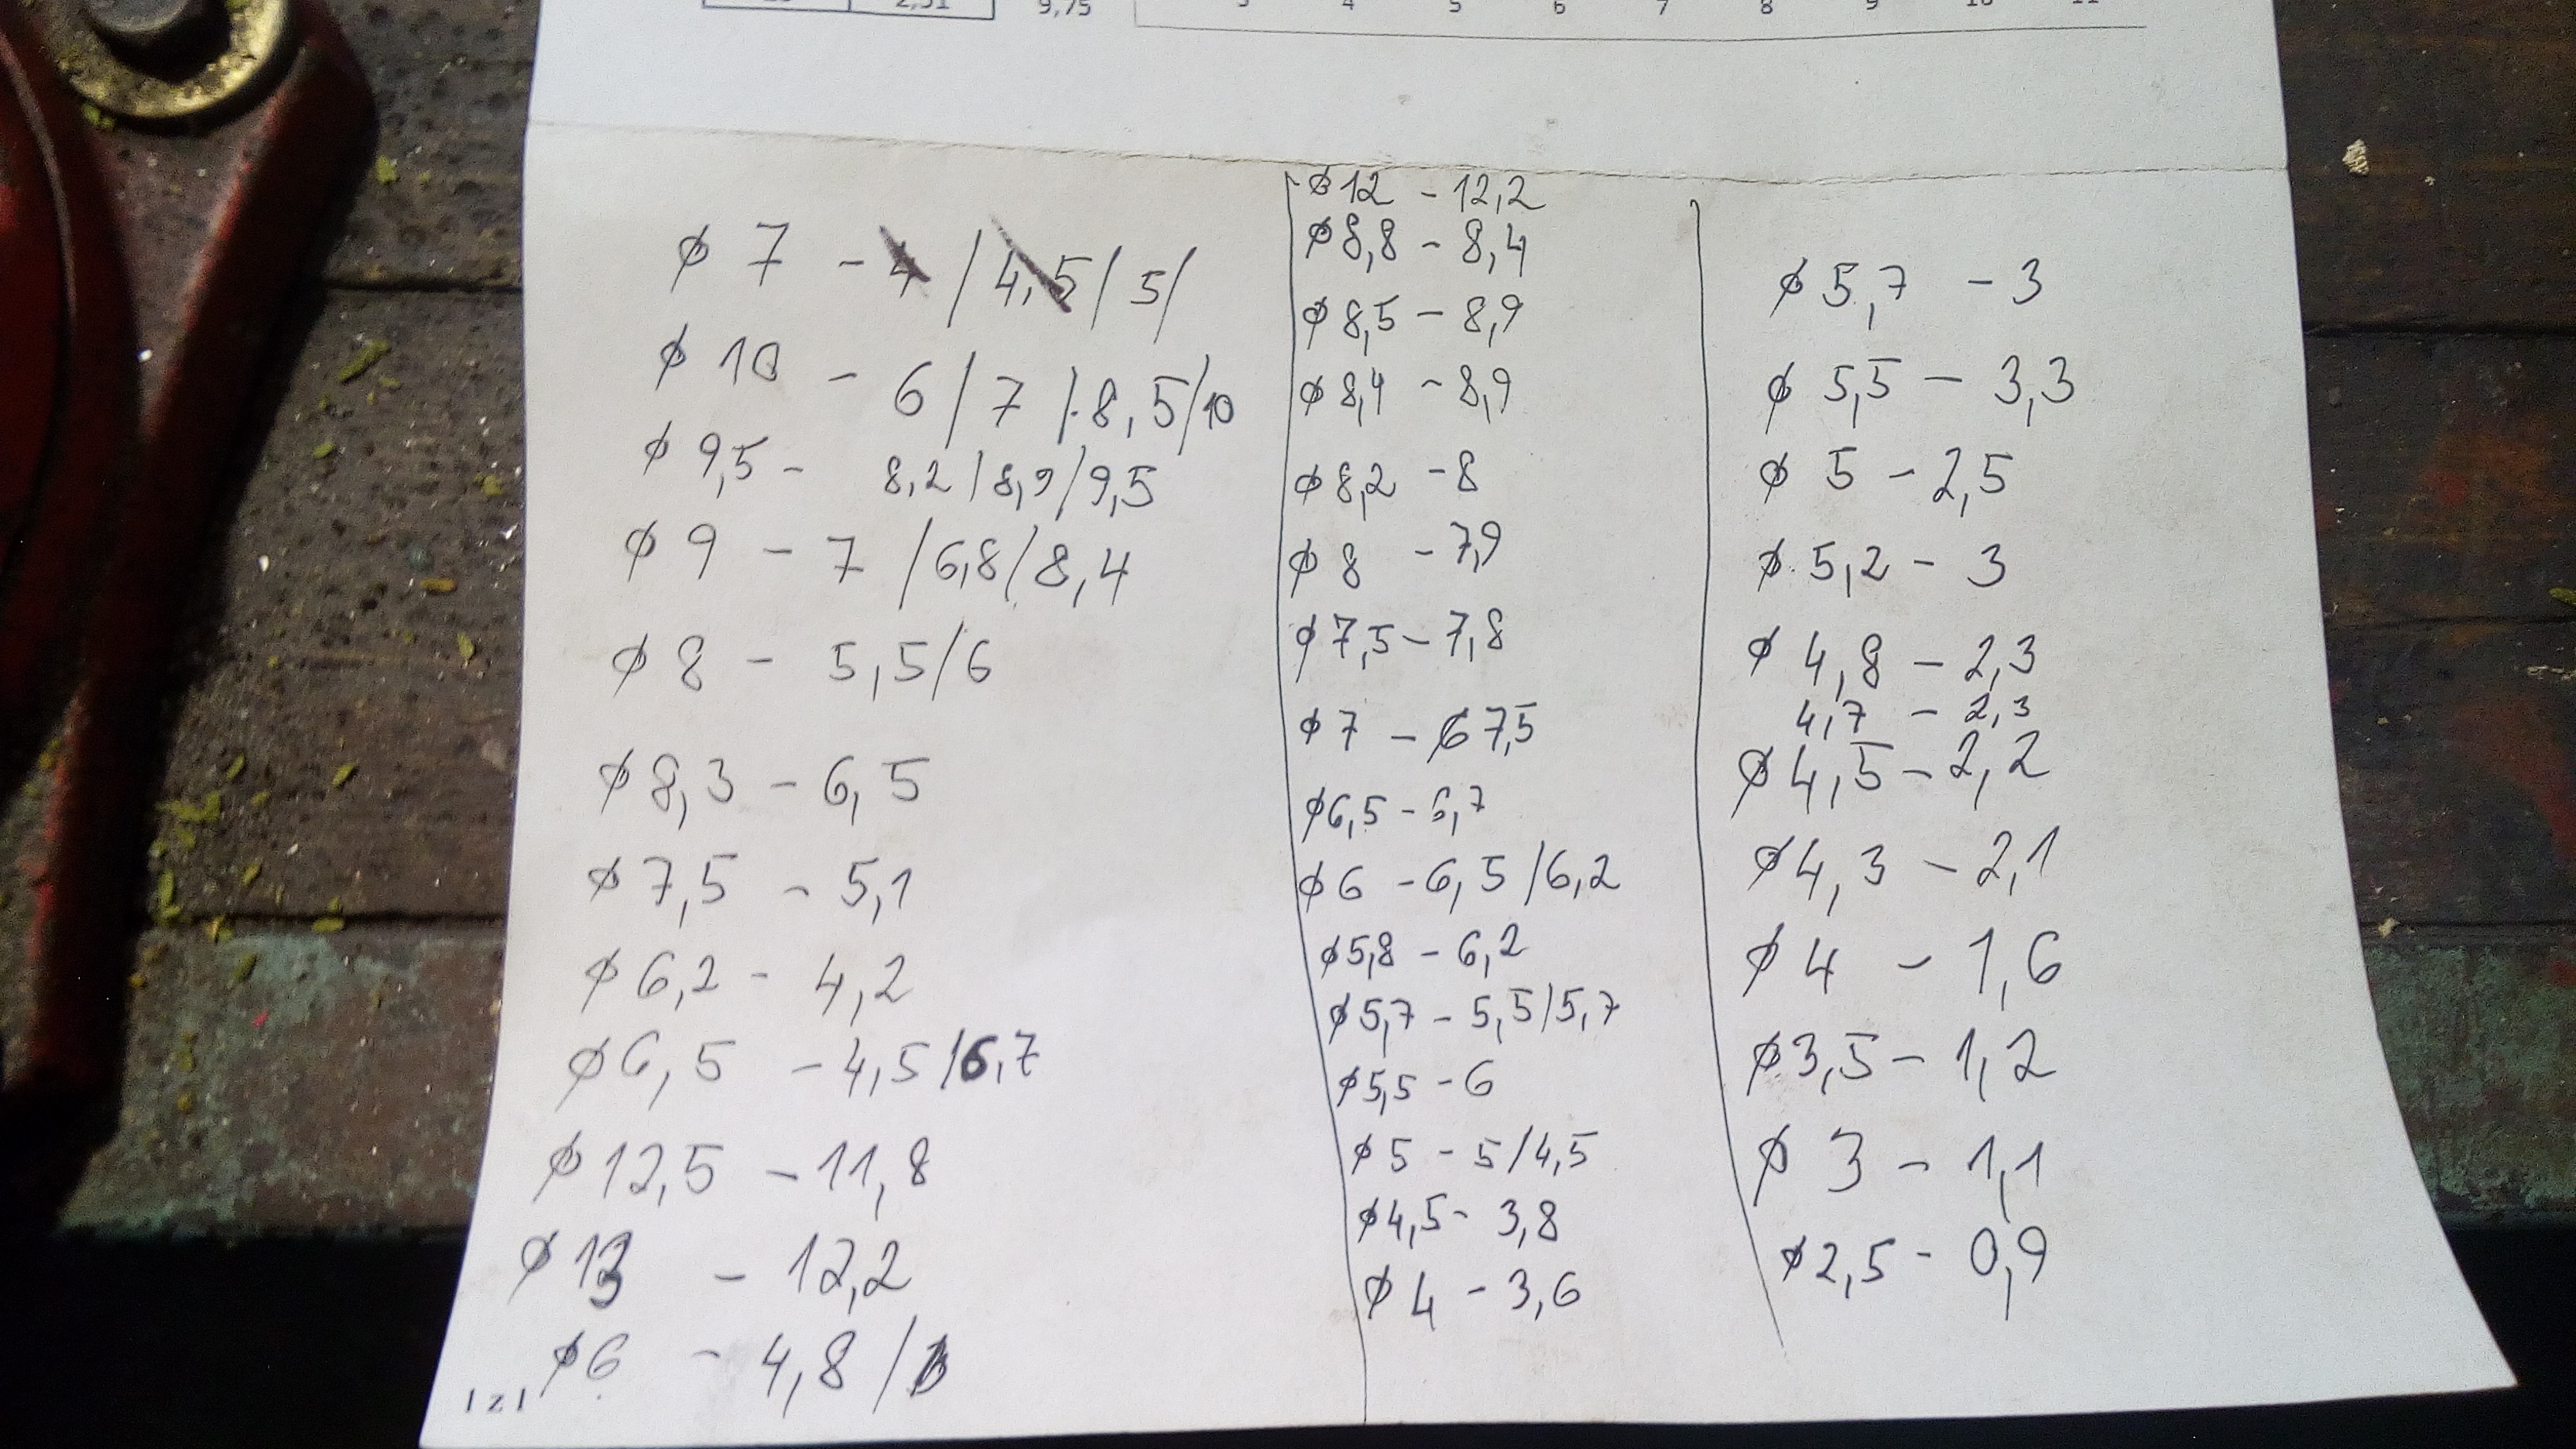 9,75 3 4 5 6 7 8 9 10 11
ø 7 - 4 / 4,5 / 5 /
ø 10 - 6 / 7 / 8,5 / 10
ø 9,5 - 8,2 / 8,9 / 9,5
ø 9 - 7 / 6,8 / 8,4
ø 8 - 5,5 / 6
ø 8,3 - 6,5
ø 7,5 - 5,1
ø 6,2 - 4,2
ø 6,5 - 4,5 / 6,7
ø 12,5 - 11,8
ø 13 - 12,2
ø 6 - 4,8 /
ø 12 - 12,2
ø 8,8 - 8,4
ø 8,5 - 8,9
ø 8,4 - 8,9
ø 8,2 - 8
ø 8 - 7,9
ø 7,5 - 7,8
ø 7 - 6 7,5
ø 6,5 - 6,7
ø 6 - 6,5 / 6,2
ø 5,8 - 6,2
ø 5,7 - 5,5 / 5,7
ø 5,5 - 6
ø 5 - 5 / 4,5
ø 4,5 - 3,8
ø 4 - 3,6
ø 5,7 - 3
ø 5,5 - 3,3
ø 5 - 2,5
ø 5,2 - 3
ø 4,8 - 2,3
4,7 - 2,3
ø 4,5 - 2,2
ø 4,3 - 2,1
ø 4 - 1,6
ø 3,5 - 1,2
ø 3 - 1,1
ø 2,5 - 0,9